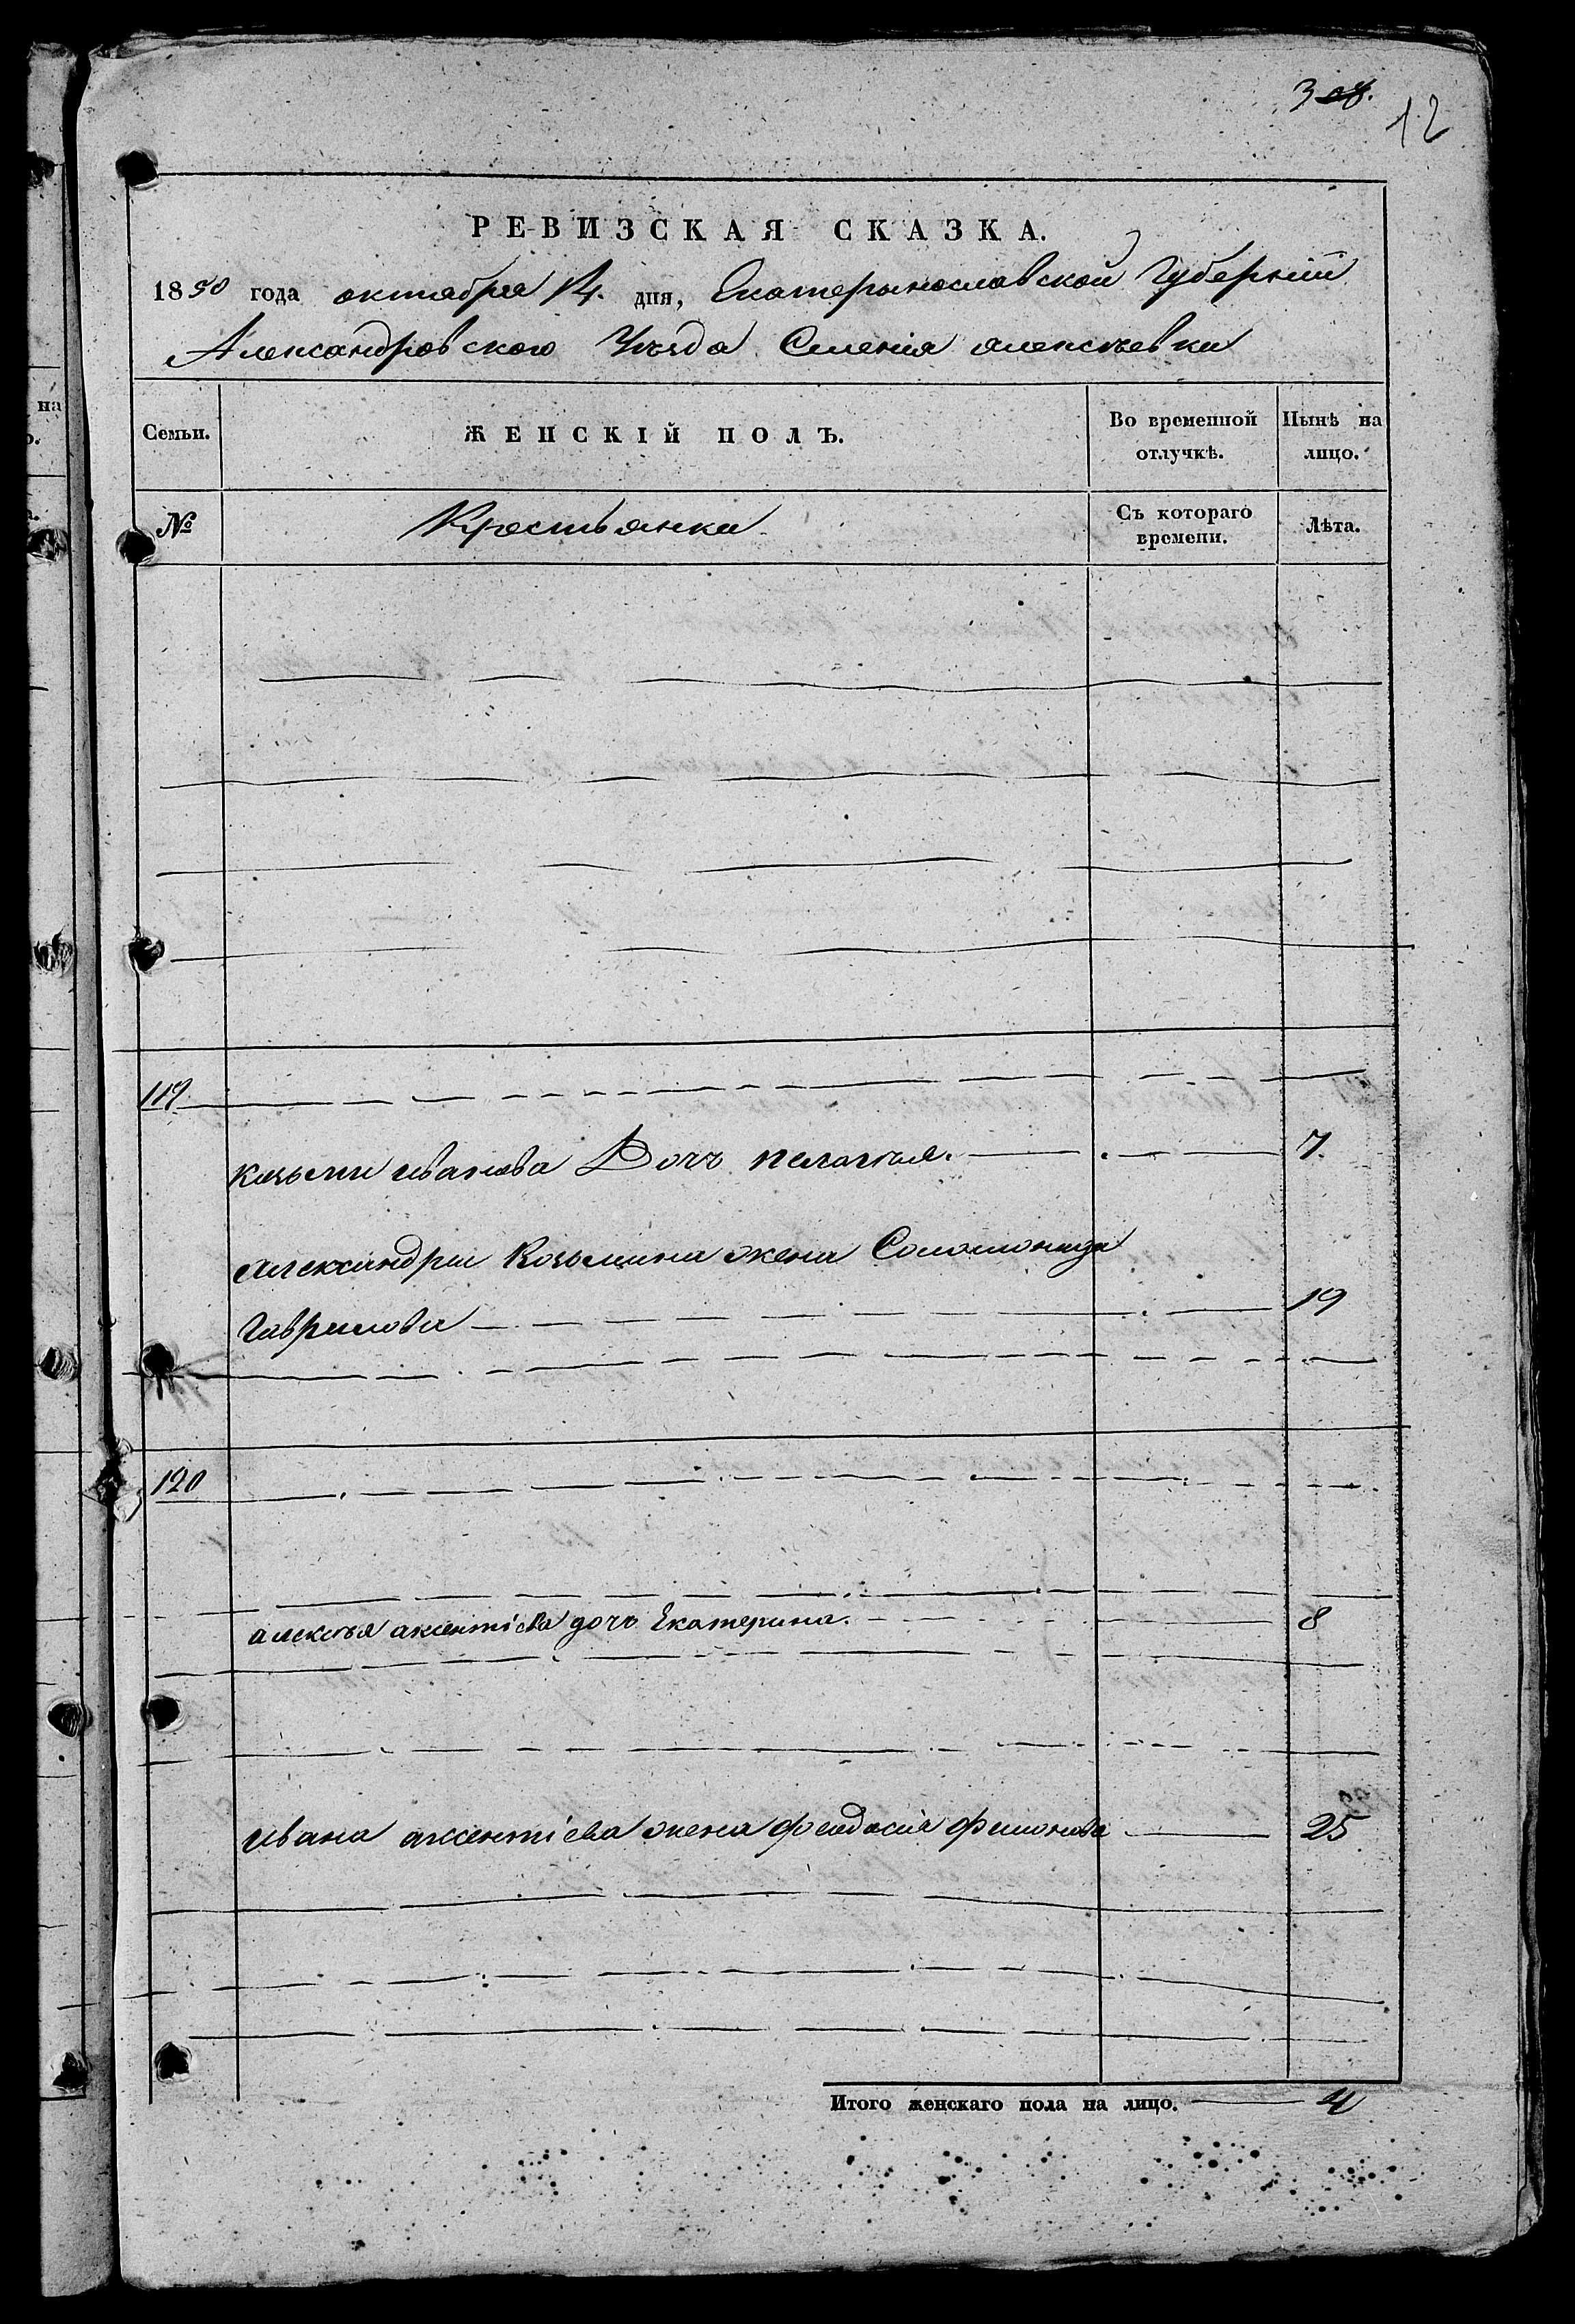 12
РЕВИЗСКАЯ СКАЗКА.
1850 года октября 14. дня, Екатеринославской Губерніи
Александровского Уѣзда Селенія алексѣевки
Семьи.
ЖЕНСКІЙ ПОЛЪ.
Во временной отлучкѣ.
Нынѣ на лицо.
№
Крестьянки
Съ котораго времени.
Лѣта.
119
козьми иванова Дочь пелагѣя. 7.
александры Козьмина жена Соломонида
Гаврилова 19
120
алексѣя аксентіева дочь Екатерина. 8
ивана аксентіева жена феодосія филонова 25
Итого женскаго пола на лицо. 4